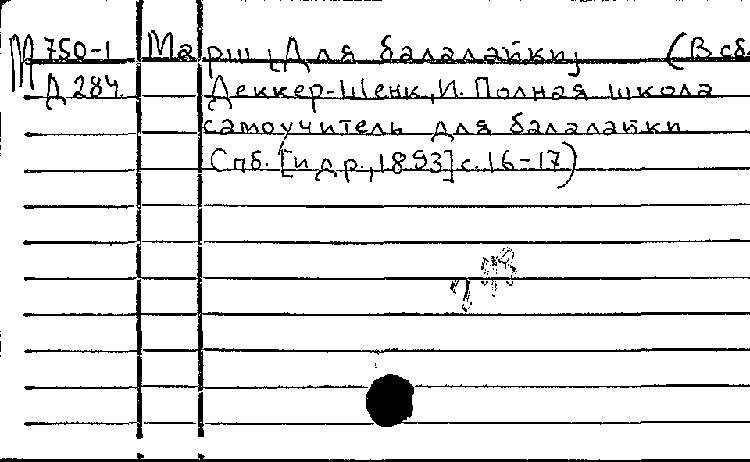 М 750-1 Марш [Для балалайки] (В сб.
Д 284 Деккер-Шенк, И. Полная школа
самоучитель для балалайки
Спб. [и др., 1893] с. 16-17)